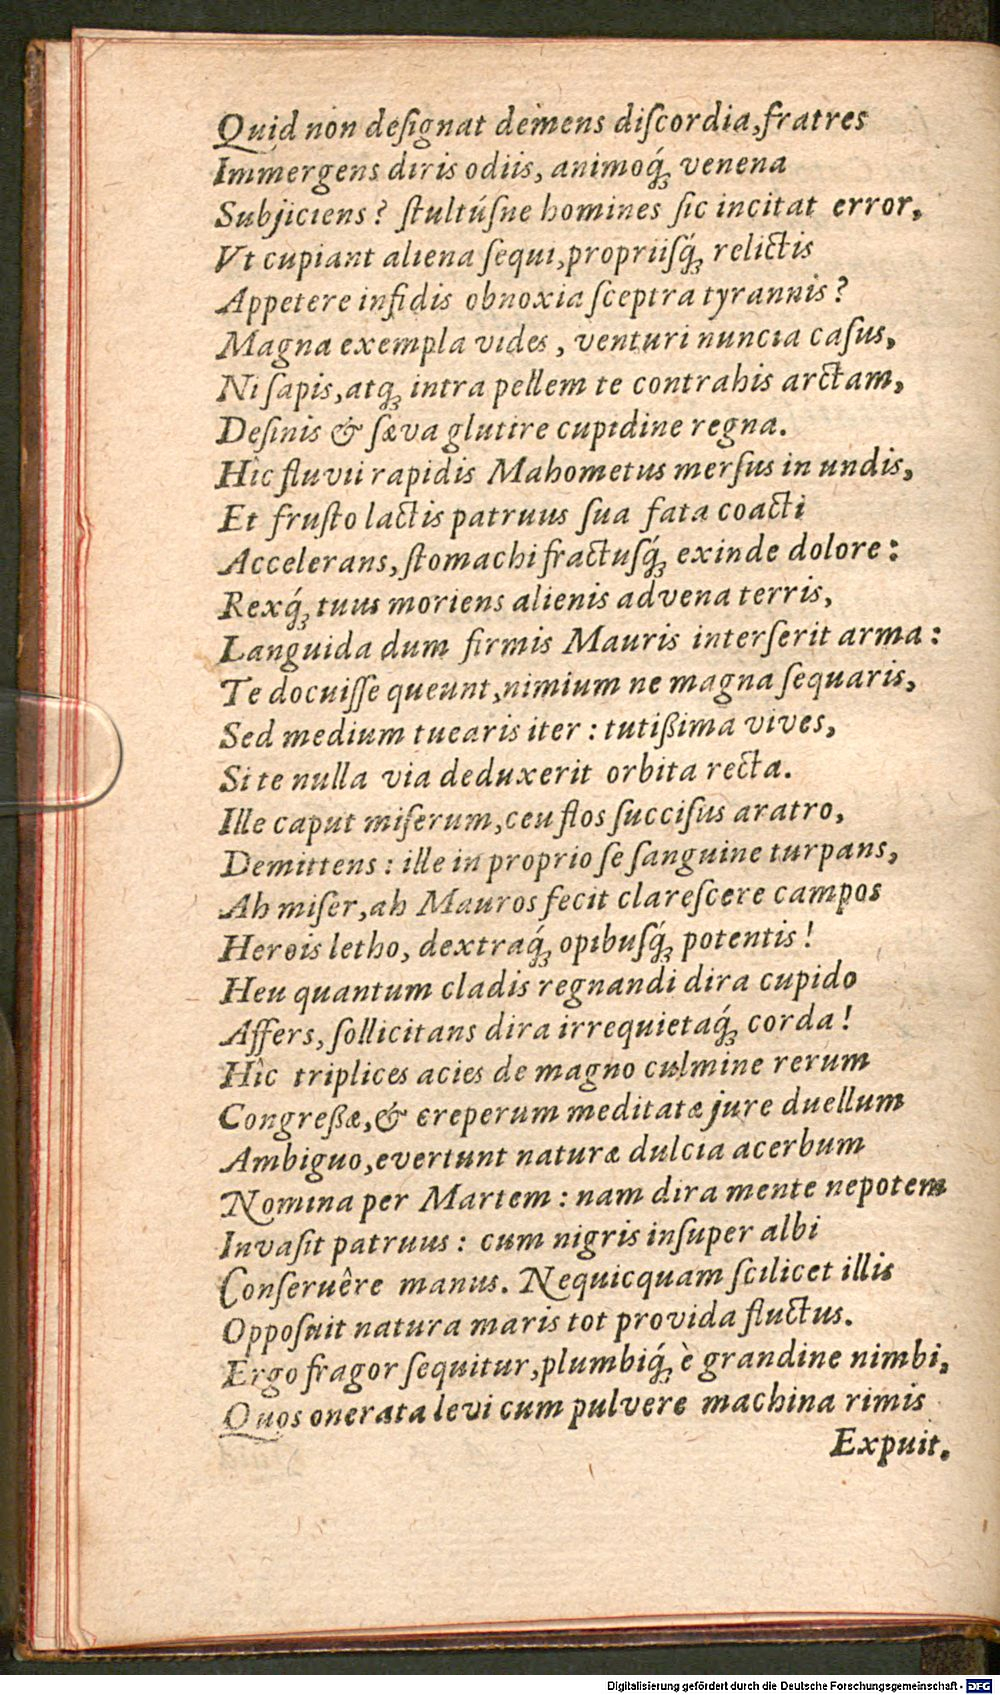 Quid non deſignat demens diſcordia, fratres
Immergens diris odiis, animoq́ꝫ venena
Subjiciens? ſtultúſne homines ſic incitat error,
Vt cupiant aliena ſequi, propriiſq́ꝫ relictis
Appetere infidis obnoxia ſceptra tyrannis?
Magna exempla vides, venturi nuncia caſus,
Ni ſapis, atqꝫ intra pellem te contrahis arctam,
Deſinis & ſæva glutire cupidine regna.
Hîc fluvii rapidis Mahometus merſus in undis,
Et fruſto lactis patruus ſua fata coacti
Accelerans, ſtomachi fractuſq́ꝫ exinde dolore:
Rexq́ꝫ tuus moriens alienis advena terris,
Languida dum firmis Mauris interſerit arma:
Te docuiſſe queunt, nimium ne magna ſequaris,
Sed medium tuearis iter: tutißima vives,
Si te nulla via deduxerit orbita recta.
Ille caput miſerum, ceu flos ſucciſus aratro,
Demittens: ille in proprio ſe ſanguine turpans,
Ah miſer, ah Mauros fecit clareſcere campos
Herois letho, dextraq́ꝫ opibuſq́ꝫ potentis!
Heu quantum cladis regnandi dira cupido
Affers, ſollicitans dira irrequietaq́ꝫ corda!
Hîc triplices acies de magno culmine rerum
Congreßæ, & creperum meditatæ jure duellum
Ambiguo, evertunt naturæ dulcia acerbum
Nomina per Martem: nam dira mente nepotem
Invaſit patruus: cum nigris inſuper albi
Conſeruêre manus. Nequicquam ſcilicet illis
Oppoſuit natura maris tot provida fluctus.
Ergo fragor ſequitur, plumbiq́ꝫ è grandine nimbi,
Quos onerata levi cum pulvere machina rimis
Expuit.
Digitalisierung gefördert durch die Deutsche Forschungsgemeinschaft - DFG